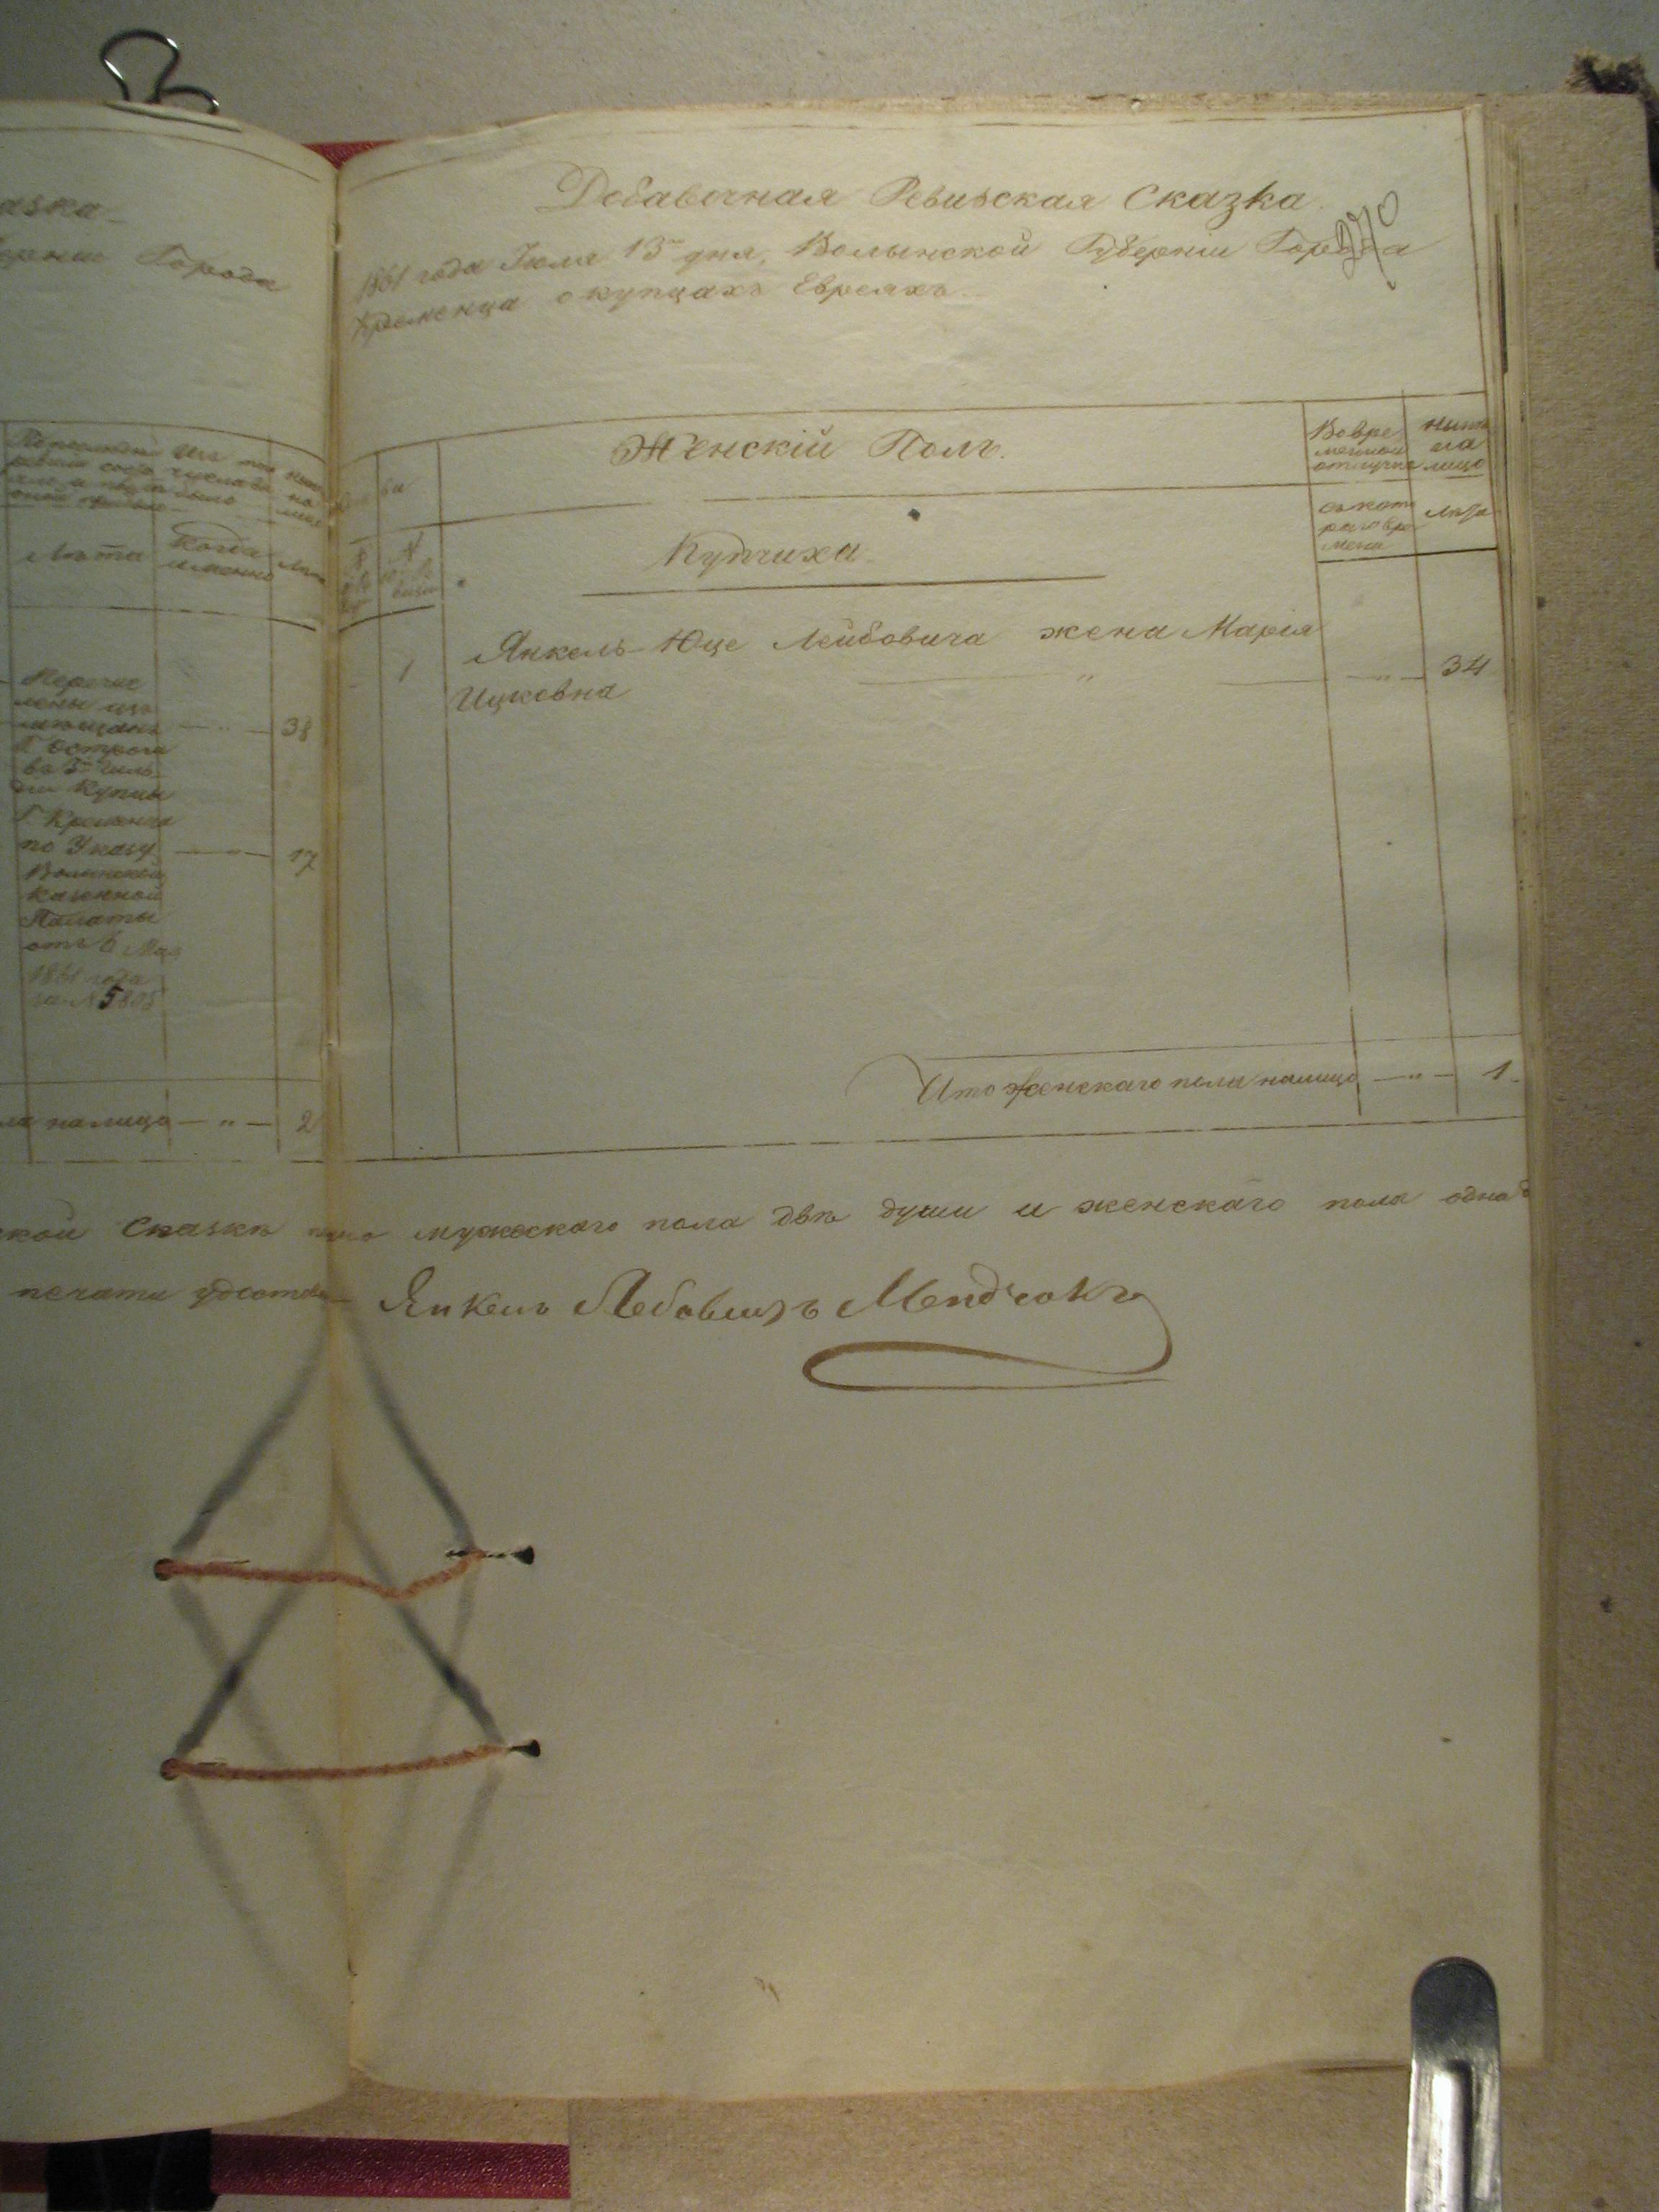 азка
берніи Города
Лѣта
Когда
именно
Перечис
лены изъ
мѣщанъ
38
Г. Острога
въ 3ю Гиль
діи Купцы
Г. Кременца
по Указу
17
Волынской
Казенной
Палаты
отъ 6 Мая
1861 года
за № 5805
ла налицо — " — 2
Добавочная Ревизская Сказка.
270
1861 года Іюля 13го дня, Волынской Губерніи Города
Кременца о купцахъ Евреяхъ
Женскій Полъ.
Вовре
менной
отлучкѣ
Нынѣ
на
лицо
съ кото
раго вре
мени
Лѣта
Купчиха
1 Янкель-Юце Лейбовича жена Марія
Ицковна — " — — " — 34
Итого женскаго пола налицо — " — 1.
ской Сказкѣ мужескаго пола двѣ души и женскаго пола одна
печати удостовѣ Янкель Лебовичъ Мендюкъ